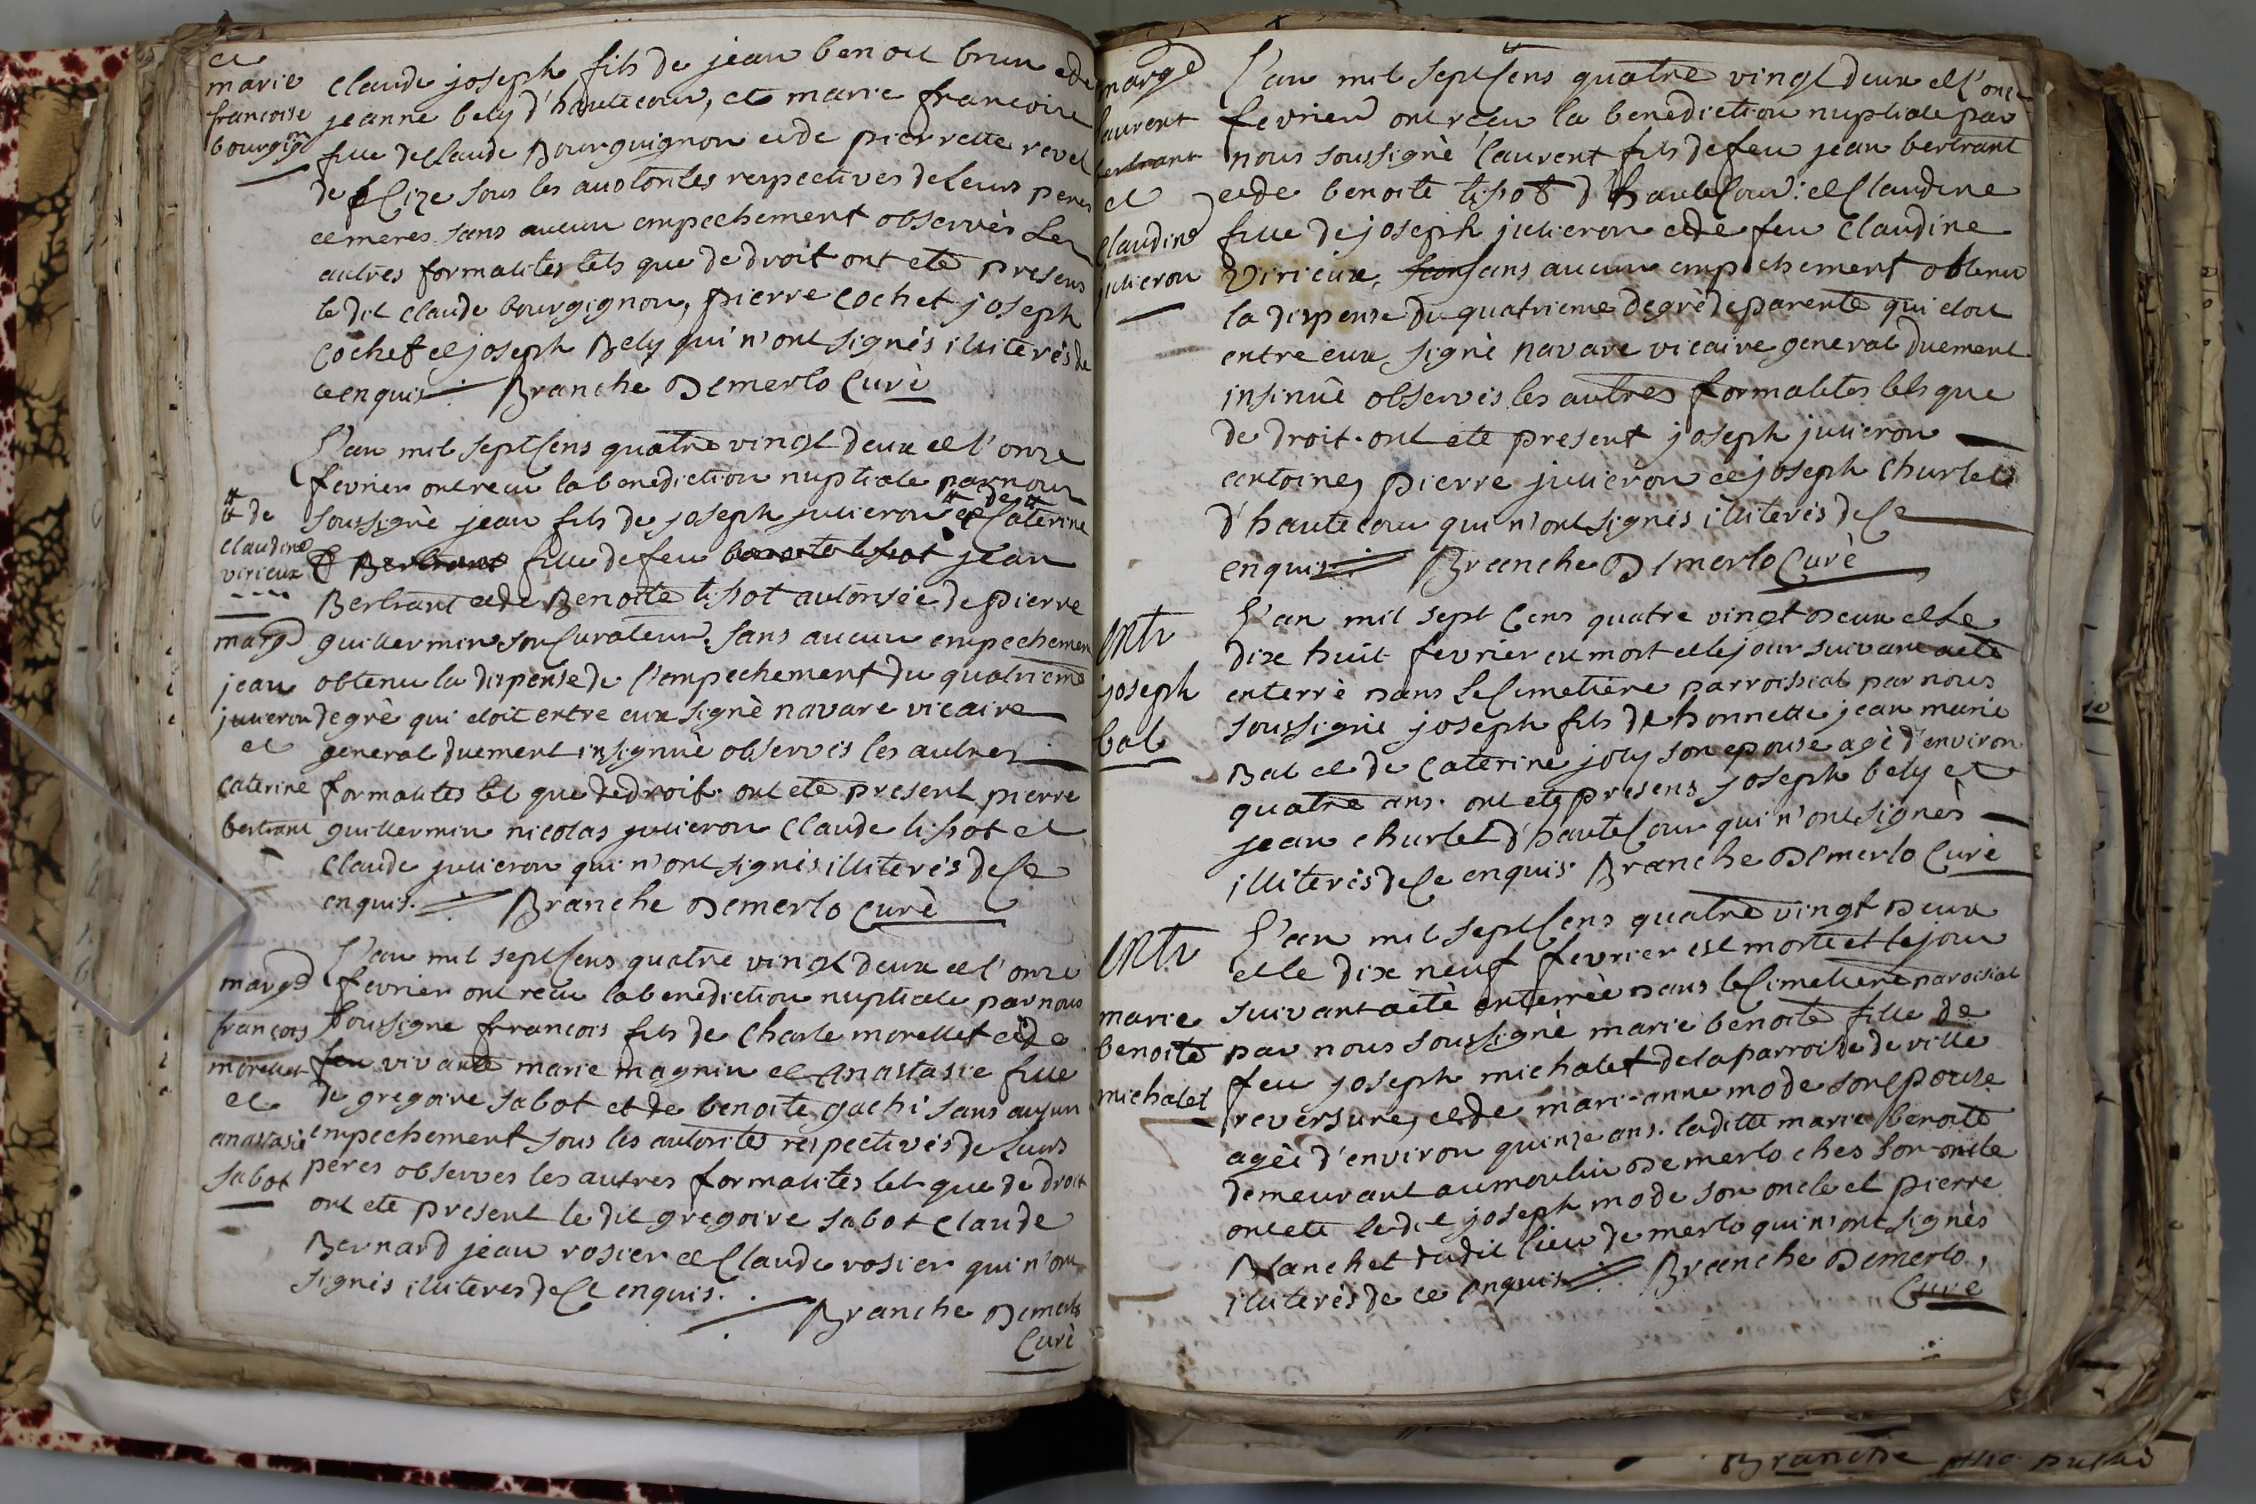 et
marie
francoise
bourgig̃n
claude joseph fils de jean benoit brun et de
jeanne bely d'hautecour, et marie francoise
fille de claude Bourguignon et de pierrette revel
de Cize sous les autorités respectives de leurs peres
et meres sans aucun empechement observés Les
autres formalites tels que de droit ont eté presens
le dit claude bourgignon, pierre cochet joseph
cochet et joseph Bely qui n'ont signés illiterés de
ce enquis Branche Demerlo Curé
L'an mil sept Cens quatre vingt deux et l'onze
fevrier ont recu la benediction nuptiale par nous
soussigné jean fils de joseph julieron # et de # Caterine
Bertrant fille de feu benoite tissot jean
Bertrant et de Benoite tissot autorisée de pierre
guillermin son Curateur, sans aucun empechement
obtenu la dispense de l'empechement du quatrieme
degré qui etoit entre eux signé navare vicaire
general duement insignué observés les autres
formalites tel que de droit. ont eté present pierre
guillermin nicolas julieron Claude tissot et
Claude julieron qui n'ont signés illiterés de Ce
enquis. Branche Demerlo Curé
# de
claudine
virieux
marg̃e
jean
julieron
et
caterine
bertrant
L'an mil sept Cens quatre vingt deux et l'onze
fevrier ont recu la benediction nuptiale par nous
soussigné francois fils de Charle morellet et de
feu vivante marie magnin et anastasie fille
de gregoire sabot et de benoite gachi sans aucun
empechement sous les autorités respectives de Leurs
peres observes les autres formalites tel que de droit
ont eté present le dit gregoire sabot Claude
Bernard jean rosier et Claude rosier qui n'ont
signés illiteres de Ce enquis.
Branche Demerlo
Curé
marg̃e
francois
morellet
et
anastasie
sabot
marg̃e
laurent
bertrant
et
claudine
julieron
L'an mil sept Cens quatre vingt deux et l'onze
fevrier ont recu la benediction nuptiale par
nous soussigné laurent fils de feu jean bertrant
et de benoite tissot d'hauteCour: et Claudine
fille de joseph julieron et de feu Claudine
Virieux, sans aucun empechement obtenu
la dispense du quatrieme degré de parente qui etoit
entre eux, signé navare vicaire general duement
insinué observés les autres formalites tels que
de droit. ont eté present joseph julieron
antoine, pierre julieron et joseph Churlet
d'hautecour qui n'ont signés illiterés de Ce
enquis Branche Demerlo Curé
entr
joseph
bal
L'an mil sept Cens quatre vingt Deux et Le
dix huit fevrier est mort et le jour suivant a eté
enterré Dans Le Cimetiere parroissial par nous
soussigné joseph fils de honnette jean marie
Bal et de Caterine joly son epouse agé d'environ
quatre ans. ont eté presens joseph bely et
jean churlet d'hauteCour qui n'ont signés
illiterés de Ce enquis. Branche Demerlo Curé
entr
marie
benoite
michalet
L'an mil sept Cens quatre vingt Deux
et le dix neuf fevrier est morte et le jour
suivant a eté enterrée Dans le Cimetiere paroisial
par nous soussigné marie benoite fille de
feu joseph michalet de la parroisse de ville
reversure, et de marianne mode son Epouse
ageé d'environ quinze ans. la ditte marie benoite
demeurant au moulin De merlo ches son oncle
ont eté le dit joseph mode son oncle et pierre
Blanchet dudit lieu de merlo qui n'ont signés
illiterés de ce enquis Branche Demerlo,
Curé
Branche